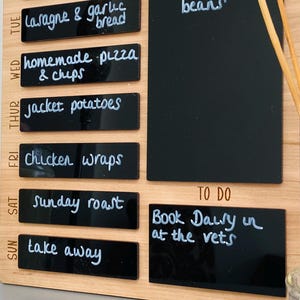 TUE
lasagne & garlic
bread
WED
homemade pizza
& chips
THUR
jacket potatoes
FRI
chicken wraps
SAT
sunday roast
SUN
take away
beans
TO DO
Book Daisy in
at the vets